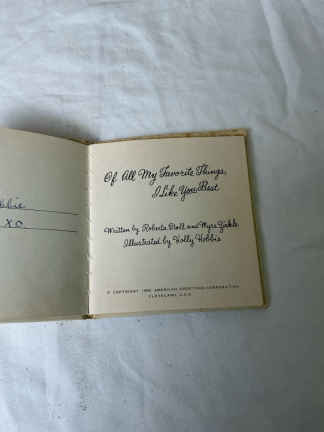 XO
Of All My Favorite Things,
I Like You Best
Written by Roberta and Myra
Illustrated by Holly Hobbie
© COPYRIGHT AMERICAN GREETINGS CORPORATION
CLEVELAND, U.S.A.